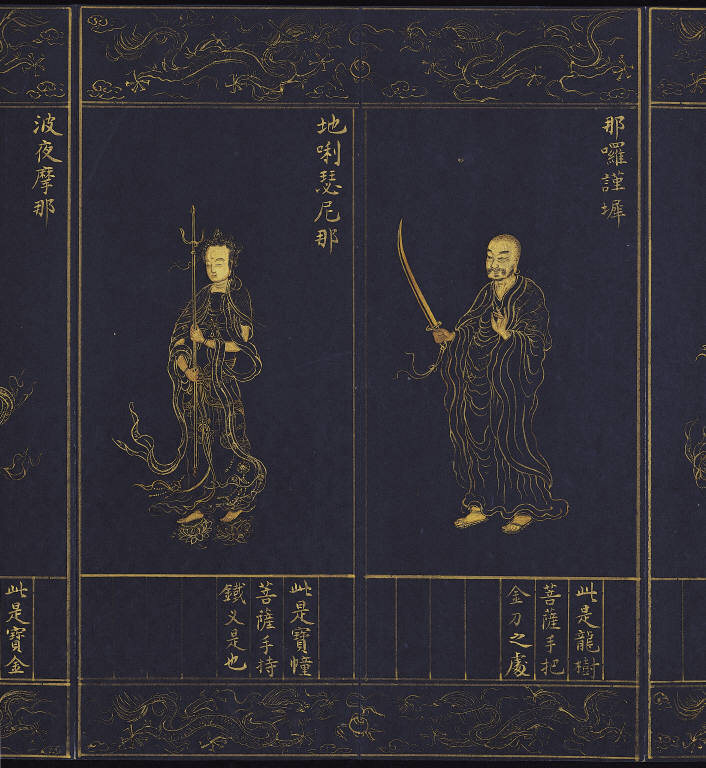 那囉謹墀
此是龍樹
菩薩手把
金刀之處
地唎瑟尼那
此是寶幢
菩薩手持
鐵叉是也
波夜摩那
此是寶金